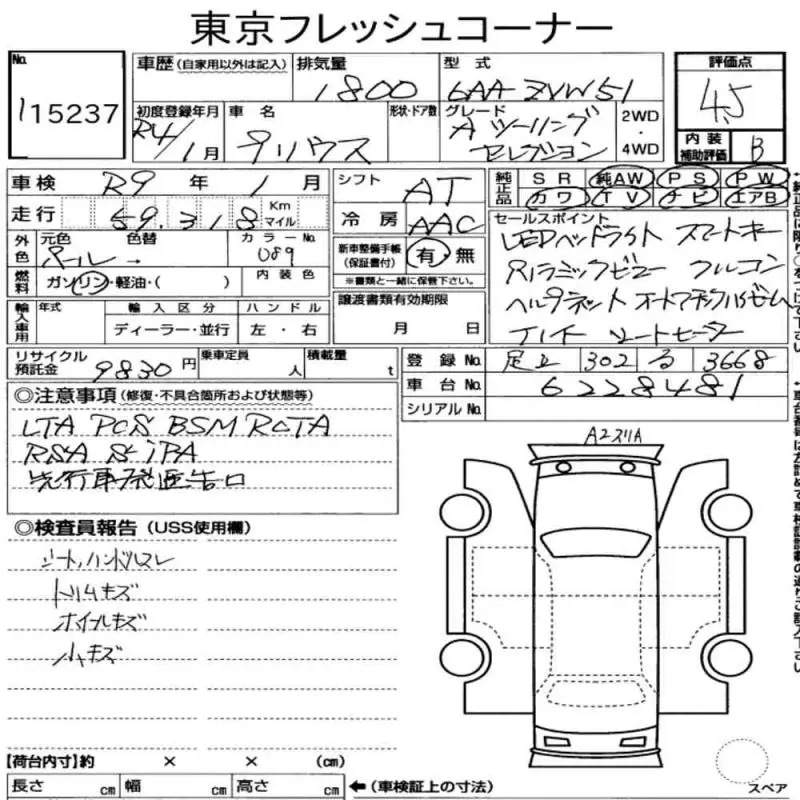 東京フレッシュコーナー
No. 115237
車歴 (自家用以外は記入) 排気量 1800 型式 6AA-ZVW51 評価点 4.5
初度登録年月 R4/1月 車名 プリウス 形状・ドア数 グレード Aツーリングセレクション 2WD・4WD 内装補助評価 B
車検 R9年1月 シフト AT 純正品 SR 純AW PS PW
走行 59,318 Km マイル 冷房 AAC カワ TV ナビ エアB
外色 元色 パール 色替 色 カラーNo. 089 新車整備手帳(保証書付) 有・無 セールスポイント
燃料 ガソリン・軽油・( ) 内装色 ※書類と一緒に保管下さい。 LEDヘッドライト スマートキー
輸入車用 年式 輸入区分 ハンドル 譲渡書類有効期限
ディーラー・並行 左・右 月 日 シートヒーター
リサイクル預託金 9830円 乗車定員 人 積載量 t 登録No. 足立 302 る 3668
車台No. 6228481
シリアルNo.
◎注意事項 (修復・不具合箇所および状態等)
LTA PCS BSM RCTA
RSA S-IPA
先行車発進告知
A2スリA
◎検査員報告 (USS使用欄)
シート,ハンドルスレ
トリムキズ
ホイールキズ
小キズ
【荷台内寸】約 × × (cm)
長さ cm 幅 cm 高さ cm ←(車検証上の寸法)
スペア